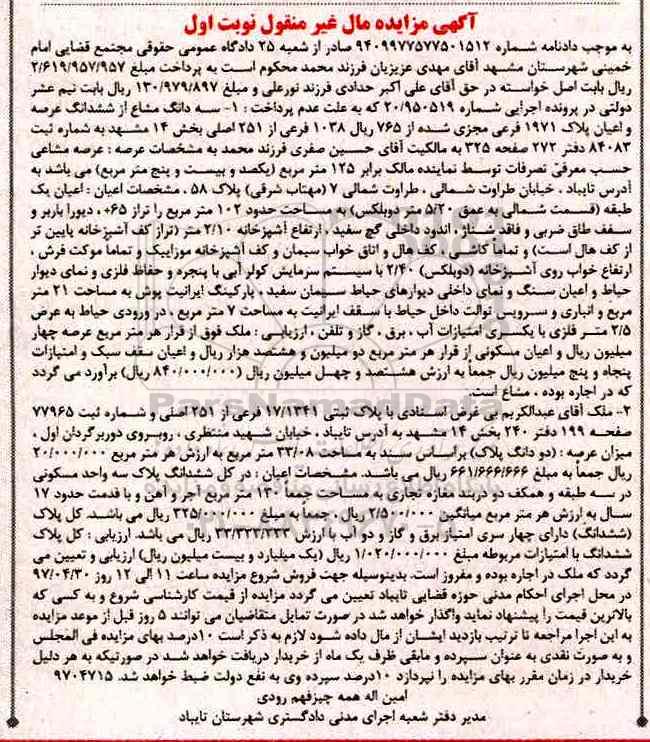 آگهی مزایده مال غیر منقول نوبت اول
به موجب دادنامه شماره ۹۴۰۹۹۷۷۵۷۷۵۰۱۵۱۲ صادر از شعبه ۲۵ دادگاه عمومی حقوقی مجتمع قضایی امام
خمینی شهرستان مشهد آقای مهدی عزیزیان فرزند محمد محکوم است به پرداخت مبلغ ۲/۶۱۹/۹۵۷/۹۵۷
ریال بابت اصل خواسته در حق آقای علی اکبر حدادی فرزند نورعلی و مبلغ ۱۳۰/۹۷۹/۸۹۷ ریال بابت نیم عشر
دولتی در پرونده اجرایی شماره ۲۰/۹۵۰۵۱۹ که به علت عدم پرداخت : ۱- سه دانگ مشاع از ششدانگ عرصه
و اعیان پلاک ۱۹۷۱ فرعی مجزی شده از ۷۶۵ ریال ۱۰۳۸ فرعی از ۲۵۱ اصلی بخش ۱۴ مشهد به شماره ثبت
۸۴۰۸۳ دفتر ۲۷۲ صفحه ۳۲۵ به مالکیت آقای حسین صفری فرزند محمد به مشخصات عرصه : عرصه مشاعی
حسب معرفی تصرفات توسط نماینده مالک برابر ۱۲۵ متر مربع (یکصد و بیست و پنج متر مربع) می باشد به
آدرس تایباد ، خیابان طراوت شمالی ، طراوت شمالی ۷ (مهتاب شرقی) پلاک ۵۸ ، مشخصات اعیان : اعیان یک
طبقه (قسمت شمالی به عمق ۵/۲۰ متر دوبلکس) به مساحت حدود ۱۰۲ متر مربع را تراز ۶۵+ ، دیورا باربر و
سقف طاق ضربی و فاقد شناژ ، اندود داخلی گچ سفید ، ارتفاع آشپزخانه ۲/۱۰ متر (تراز کف آشپزخانه پایین تر
از کف هال است) و تماماً کاشی ، کف هال و اتاق خواب سیمان و کف آشپزخانه موزاییک و تماما موکت فرش ،
ارتفاع خواب روی آشپزخانه (دوبلکس) ۲/۴۰ با سیستم سرمایش کولر آبی با پنجره و حفاظ فلزی و نمای دیوار
حیاط و اعیان سنگ و نمای داخلی دیوارهای حیاط سیمان سفید ، پارکینگ ایرانیت پوش به مساحت ۲۱ متر
مربع و انباری و سرویس توالت داخل حیاط با سقف ایرانیت به مساحت ۷ متر مربع ، در ورودی حیاط به عرض
۲/۵ متر فلزی با یکسری امتیازات آب ، برق ، گاز و تلفن ، ارزیابی : ملک فوق از قرار هر متر مربع عرصه چهار
میلیون ریال و اعیان مسکونی از قرار هر متر مربع دو میلیون و هشتصد هزار ریال و اعیان سقف سبک و امتیازات
پنجاه و پنج میلیون ریال جمعاً به ارزش هشتصد و چهل میلیون ریال (۸۴۰/۰۰۰/۰۰۰ ریال) برآورد می گردد
که در اجاره بوده ، مشاع است.
۲- ملک آقای عبدالکریم بی غرض اسنادی با پلاک ثبتی ۱۷/۱۳۴۱ فرعی از ۲۵۱ اصلی و شماره ثبت ۷۷۹۶۵
صفحه ۱۹۹ دفتر ۲۴۰ بخش ۱۴ مشهد به آدرس تایباد ، خیابان شهید منتظری ، روبروی دوربرگردان اول ،
میزان عرصه : (دو دانگ پلاک) براساس سند به مساحت ۳۳/۰۸ متر مربع به ارزش هر متر مربع ۲۰/۰۰۰/۰۰۰
ریال جمعاً به مبلغ ۶۶۱/۶۶۶/۶۶۶ ریال می باشد. مشخصات اعیان : در کل ششدانگ پلاک سه واحد مسکونی
در سه طبقه و همکف دو دربند مغازه تجاری به مساحت جمعا ۱۳۰ متر مربع آجر و آهن و با قدمت حدود ۱۷
سال به ارزش هر متر مربع میانگین ۲/۵۰۰/۰۰۰ ریال جمعاً به مبلغ ۳۲۵/۰۰۰/۰۰۰ ریال می باشد. کل پلاک
(ششدانگ) دارای چهار سری امتیاز برق و گاز و دو آب با ارزش ۳۳/۳۳۳/۳۳۳ ریال می باشد. ارزیابی : کل پلاک
ششدانگ با امتیازات مربوطه مبلغ ۱/۰۲۰/۰۰۰/۰۰۰ ریال (یک میلیارد و بیست میلیون ریال) ارزیابی و تعیین می
گردد که ملک در اجاره بوده و مفروز است. بدینوسیله جهت فروش شروع مزایده ساعت ۱۱ الی ۱۲ روز ۹۷/۰۴/۳۰
در محل اجرای احکام مدنی حوزه قضایی تایباد تعیین می گردد مزایده از قیمت کارشناسی شروع و به کسی که
بالاترین قیمت را پیشنهاد نماید واگذار خواهد شد در صورت تمایل متقاضیان می توانند ۵ روز قبل از موعد مزایده
به این اجرا مراجعه تا ترتیب بازدید ایشان از مال داده شود لازم به ذکر است ۱۰درصد بهای مزایده فی المجلس
و به صورت نقدی به عنوان سپرده و مابقی ظرف یک ماه از خریدار دریافت خواهد شد در صورتیکه به هر دلیل
خریدار در زمان مقرر بهای مزایده را نپردازد ۱۰درصد سپرده وی به نفع دولت ضبط خواهد شد. ۹۷۰۴۷۱۵
امین اله همه چیزفهم رودی
مدیر دفتر شعبه اجرای مدنی دادگستری شهرستان تایباد
ParsNamadData